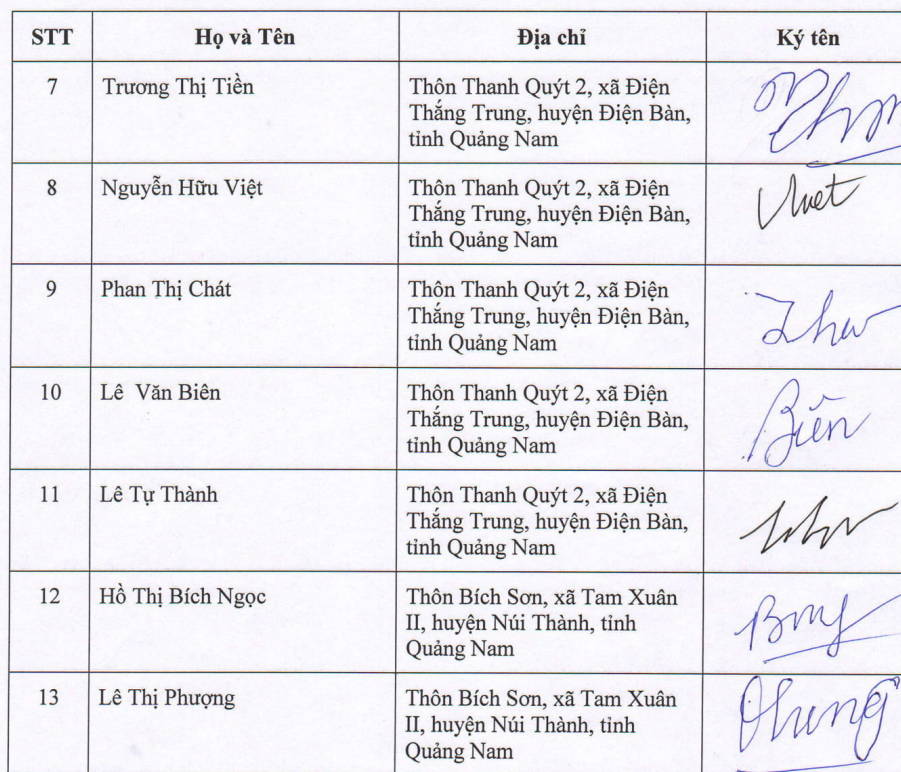 STT Họ và Tên Địa chỉ Ký tên
7 Trương Thị Tiền Thôn Thanh Quýt 2, xã Điện
Thắng Trung, huyện Điện Bàn,
tỉnh Quảng Nam
8 Nguyễn Hữu Việt Thôn Thanh Quýt 2, xã Điện
Thắng Trung, huyện Điện Bàn,
tỉnh Quảng Nam
9 Phan Thị Chát Thôn Thanh Quýt 2, xã Điện
Thắng Trung, huyện Điện Bàn,
tỉnh Quảng Nam
10 Lê Văn Biên Thôn Thanh Quýt 2, xã Điện
Thắng Trung, huyện Điện Bàn,
tỉnh Quảng Nam
Biên
11 Lê Tự Thành Thôn Thanh Quýt 2, xã Điện
Thắng Trung, huyện Điện Bàn,
tỉnh Quảng Nam
12 Hồ Thị Bích Ngọc Thôn Bích Sơn, xã Tam Xuân
II, huyện Núi Thành, tỉnh
Quảng Nam
13 Lê Thị Phượng Thôn Bích Sơn, xã Tam Xuân
II, huyện Núi Thành, tỉnh
Quảng Nam